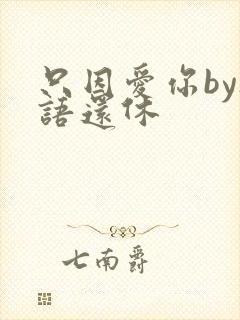 只因愛你by
語還休
七南爵